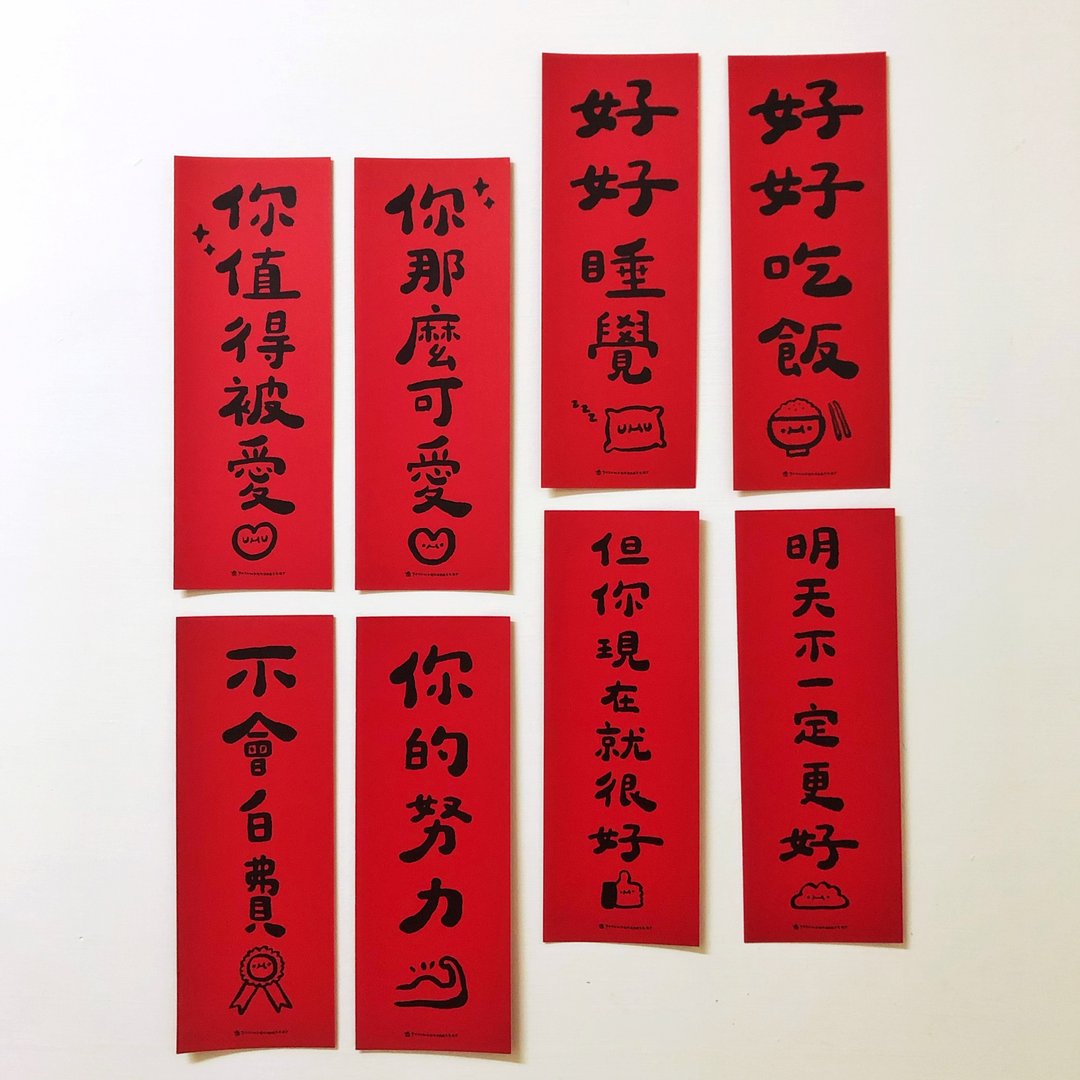 你那麼可愛
你值得被愛
好好吃飯
好好睡覺
zzz
你的努力
不會白費
明天不一定更好
但你現在就很好